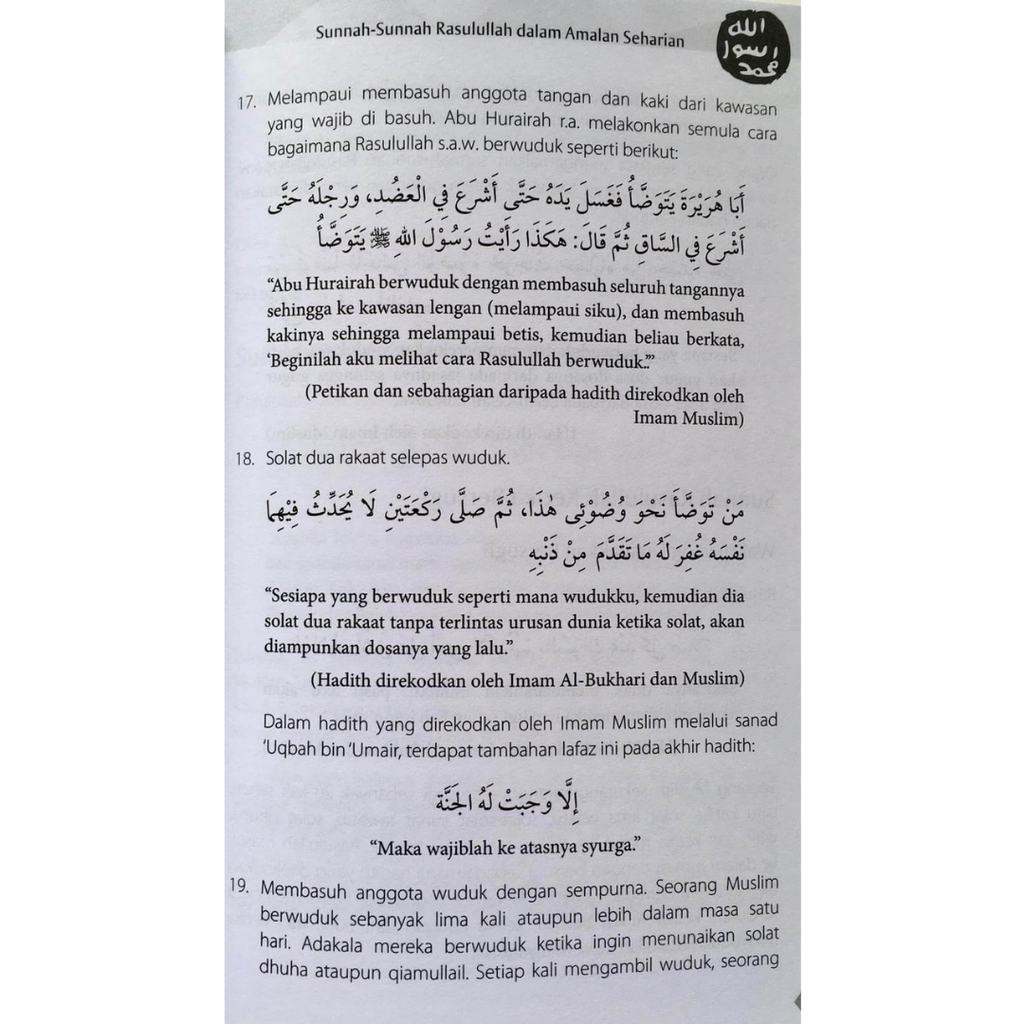 Sunnah-Sunnah Rasulullah dalam Amalan Seharian
الله
رسول
محمد
17. Melampaui membasuh anggota tangan dan kaki dari kawasan
yang wajib di basuh. Abu Hurairah r.a. melakonkan semula cara
bagaimana Rasulullah s.a.w. berwuduk seperti berikut:
أَبَا هُرَيْرَةَ يَتَوَضَّأُ فَغَسَلَ يَدَهُ حَتَّى أَشْرَعَ فِي الْعَضُدِ، وَرِجْلَهُ حَتَّى
أَشْرَعَ فِي السَّاقِ ثُمَّ قَالَ: هَكَذَا رَأَيْتُ رَسُوْلَ اللهِ ﷺ يَتَوَضَّأُ
“Abu Hurairah berwuduk dengan membasuh seluruh tangannya
sehingga ke kawasan lengan (melampaui siku), dan membasuh
kakinya sehingga melampaui betis, kemudian beliau berkata,
‘Beginilah aku melihat cara Rasulullah berwuduk.’”
(Petikan dan sebahagian daripada hadith direkodkan oleh
Imam Muslim)
18. Solat dua rakaat selepas wuduk.
مَنْ تَوَضَّأَ نَحْوَ وُضُوْئِى هٰذَا، ثُمَّ صَلَّى رَكْعَتَيْنِ لَا يُحَدِّثُ فِيْهِمَا
نَفْسَهُ غُفِرَ لَهُ مَا تَقَدَّمَ مِنْ ذَنْبِهِ
“Sesiapa yang berwuduk seperti mana wudukku, kemudian dia
solat dua rakaat tanpa terlintas urusan dunia ketika solat, akan
diampunkan dosanya yang lalu.”
(Hadith direkodkan oleh Imam Al-Bukhari dan Muslim)
Dalam hadith yang direkodkan oleh Imam Muslim melalui sanad
‘Uqbah bin ‘Umair, terdapat tambahan lafaz ini pada akhir hadith:
إِلَّا وَجَبَتْ لَهُ الْجَنَّة
“Maka wajiblah ke atasnya syurga.”
19. Membasuh anggota wuduk dengan sempurna. Seorang Muslim
berwuduk sebanyak lima kali ataupun lebih dalam masa satu
hari. Adakala mereka berwuduk ketika ingin menunaikan solat
dhuha ataupun qiamullail. Setiap kali mengambil wuduk, seorang